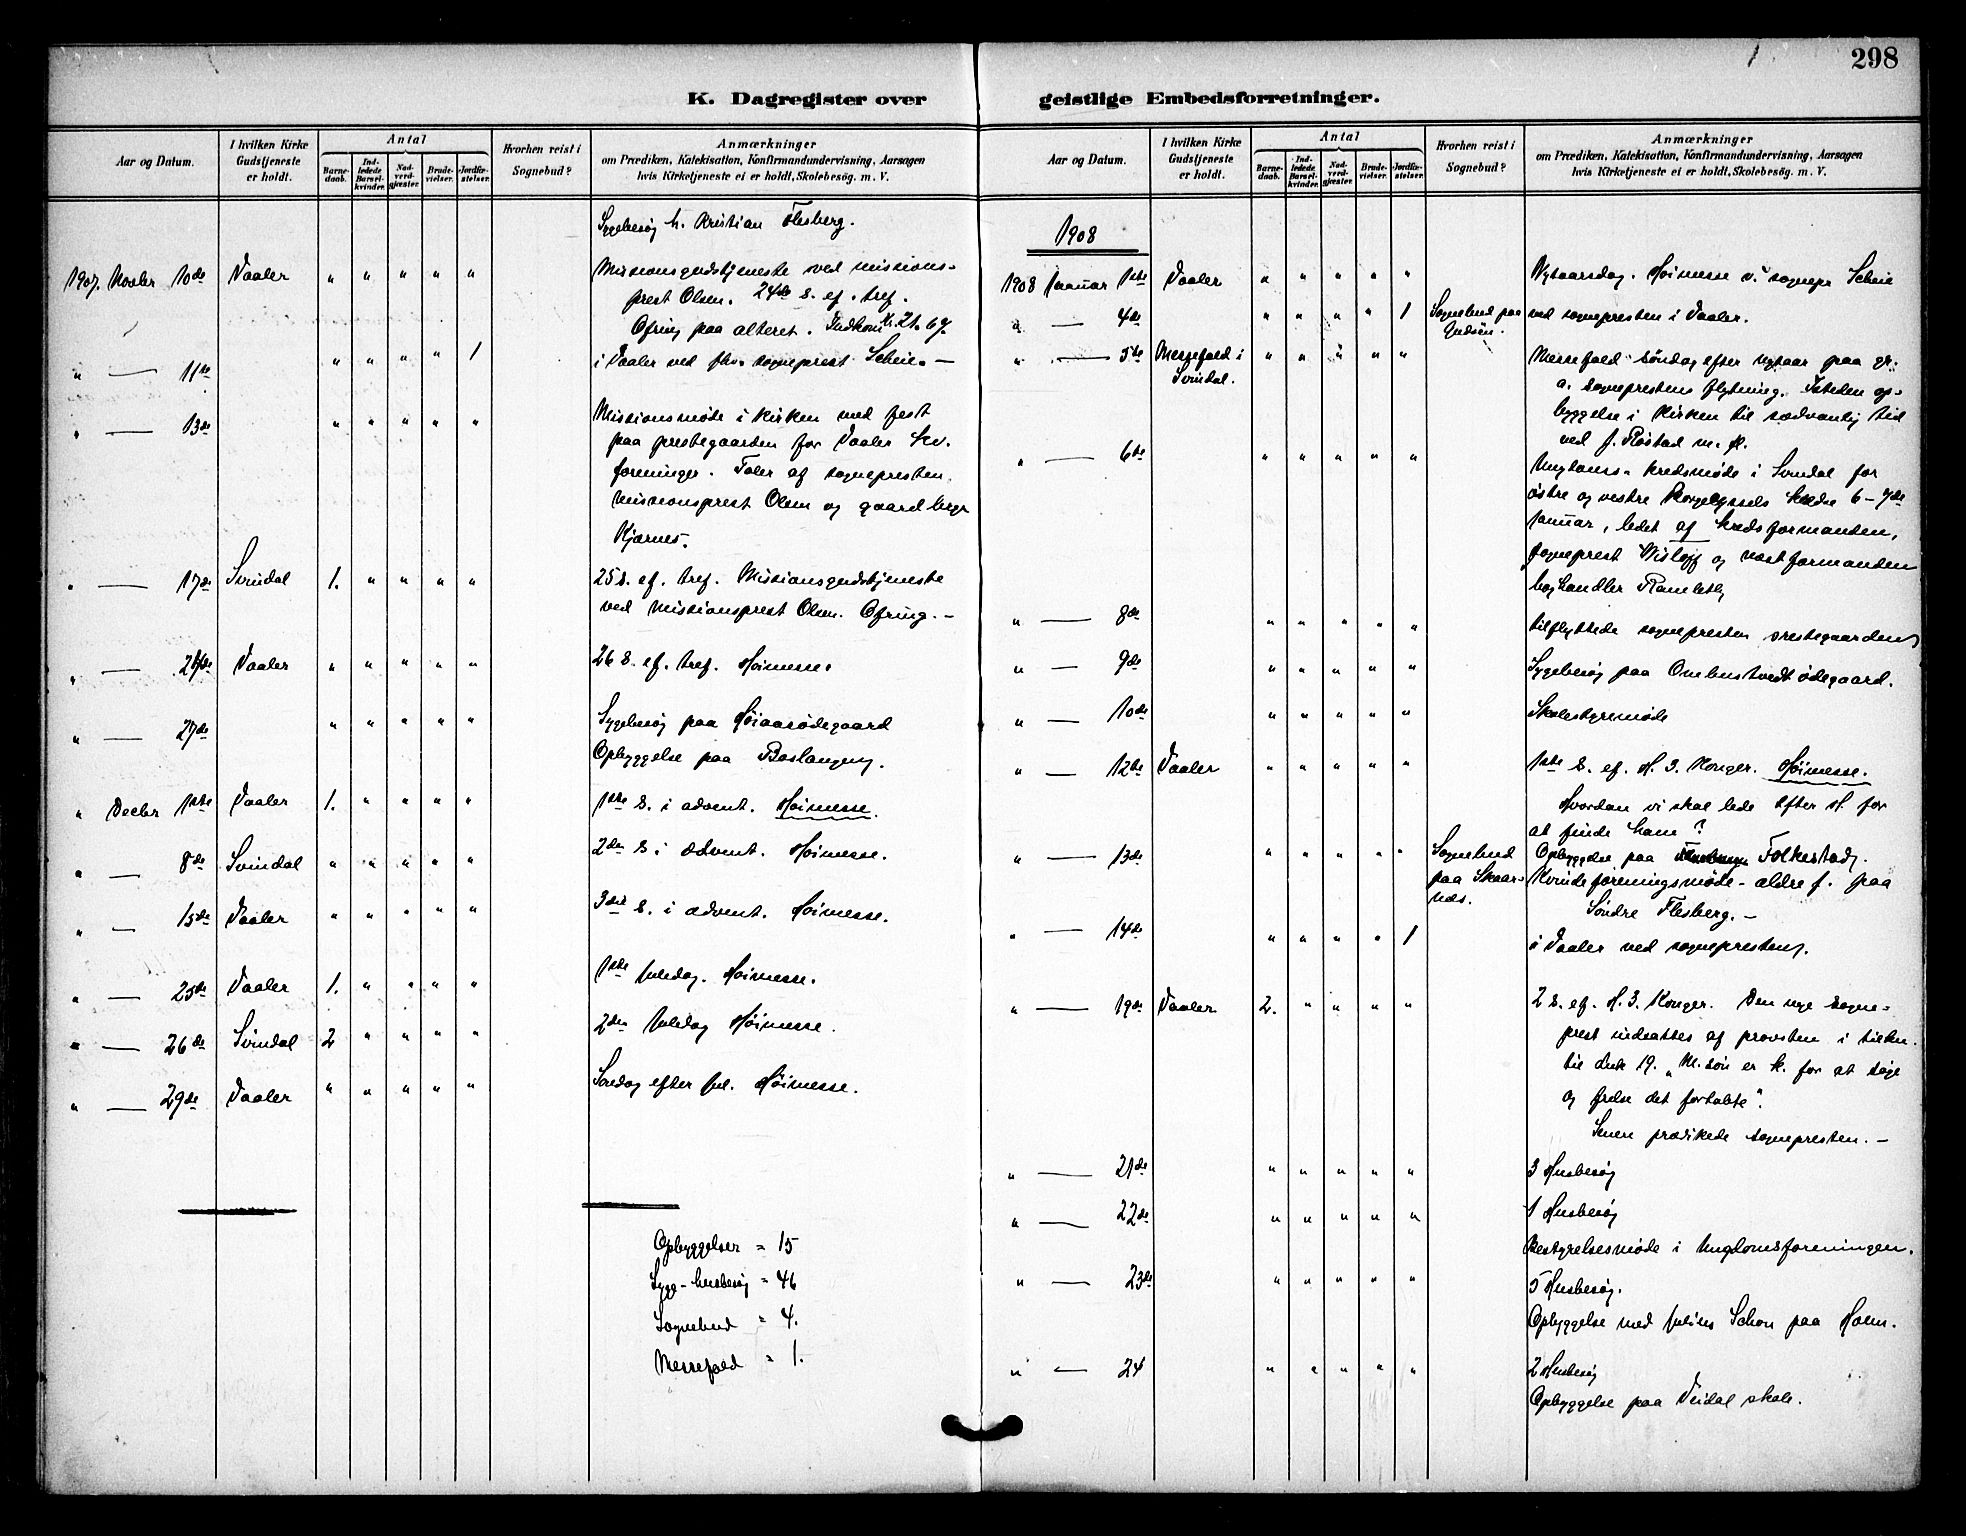 298
K. Dagregister over geistlige Embedsforretninger.
Aar og Datum.
I hvilken Kirke Gudstjeneste er holdt.
Antal
Barnedaab.
Indledede Barselkvinder.
Nadverdgjester.
Brudevielser.
Jordfæstelser.
Hvorhen reist i Sognebud?
Anmærkninger
om Prædiken, Katekisation, Konfirmandundervisning, Aarsagen
hvis Kirketjeneste ei er holdt, Skolebesøg. m. V.
Sygebesøg h. Kristian Flesberg.
1907 Novbr 10de Vaaler " " " " " Missionsgudstjeneste ved missions-
prest Olsen. 24de S. ef. tref.
Ofring paa alteret. Indkom Kr. 21.69.
" — 11te " " " " 1 i Vaaler ved fhv. sogneprest Scheie. —
" — 13de " " " " " Missionsmøde i kirken med fest
paa prestegaarden for Vaaler kv.
foreninger. Taler af sognepresten,
missionsprest Olsen og gaardbrgr
Kjærnes.
" — 17de Svindal 1. " " " " 25 S. ef. tref. Missionsgudstjeneste
ved missionsprest Olsen. Ofring. —
" — 24de Vaaler " " " " " 26 S. ef. tref. Høimesse.
" — 27de " " " " " Sygebesøg paa Høiaasødegaard
Opbyggelse paa
" Decbr 1ste Vaaler 1. " " " " 1ste S. i advent. Høimesse.
" — 8de Svindal " " " " " 2den S i advent. Høimesse.
" — 15de Vaaler " " " " " 3die S. i advent. Høimesse.
" — 25de Vaaler 1. " " " " 1ste juledag. Høimesse.
" — 26de Svindal 2 " " " " 2den juledag Høimesse.
" — 29de Vaaler " " " " " Søndag efter jul. Høimesse.
Opbyggelser = 15
Syge-husbesøg = 46
Sognebud = 4.
Messefald = 1.
Aar og Datum.
I hvilken Kirke Gudstjeneste er holdt.
Antal
Barnedaab.
Indledede Barselkvinder.
Nadverdgjester.
Brudevielser.
Jordfæstelser.
Hvorhen reist i Sognebud?
Anmærkninger
om Prædiken, Katekisation, Konfirmandundervisning, Aarsagen
hvis Kirketjeneste ei er holdt, Skolebesøg. m. V.
1908
1908 Januar 1ste Vaaler " " " " " Nytaarsdag. Høimesse v. sognepr Scheie
" — 4de " " " " 1 Sognebud paa ved sognepresten i Vaaler.
" — 5te Messefald i Svindal. " " " " " Messefald søndag efter nytaar paa gr.
a. sogneprestens flytning. Isteden op-
byggelse i kirken til sædvanlig tid
ved J. Røstad m. fl.
" — 6te " " " " " Ungdoms-kredsmøde i Svindal for
østre og vestre Borgesyssels kreds 6-7de
januar, ledet af kredsformanden,
sogneprest Wisløff og næstformanden
boghandler
" — 8de " " " " " tilflyttede sognepresten prestegaarden
" — 9de " " " " " Sygebesøg paa Ombustvedtødegaard.
" — 10de " " " " " Skolestyremøde
" — 12te Vaaler " " " " " 1ste S. ef. H. 3. Konger. Høimesse.
Hvordan vi skal lede efter H. for
at finde ham?
" — 13de " " " " " Sognebud paa Skaarnæs. Opbyggelse paa Folkestad.
Kvindeforeningsmøde - ældre f. paa
Søndre Flesberg. —
" — 14de " " " " 1 i Vaaler ved sognepresten.
" — 19de Vaaler 2. " " " " 2 S. ef. H. 3. Konger. Den nye sogne-
prest indsættes af provsten i
til Luk 19. „M. søn er k. for at søge
og frelse det fortabte“.
Senere prædikede sognepresten. —
" — 21de " " " " " 3 Husbesøg
" — 22de " " " " " 1 Husbesøg
Bestyrelsesmøde i Ungdomsforeningen.
" — 23de " " " " " 5 Husbesøg.
Opbyggelse med Julius Schou paa Holm.
" — 24 " " " " " 2 Husbesøg
Opbyggelse paa Veidal skole.